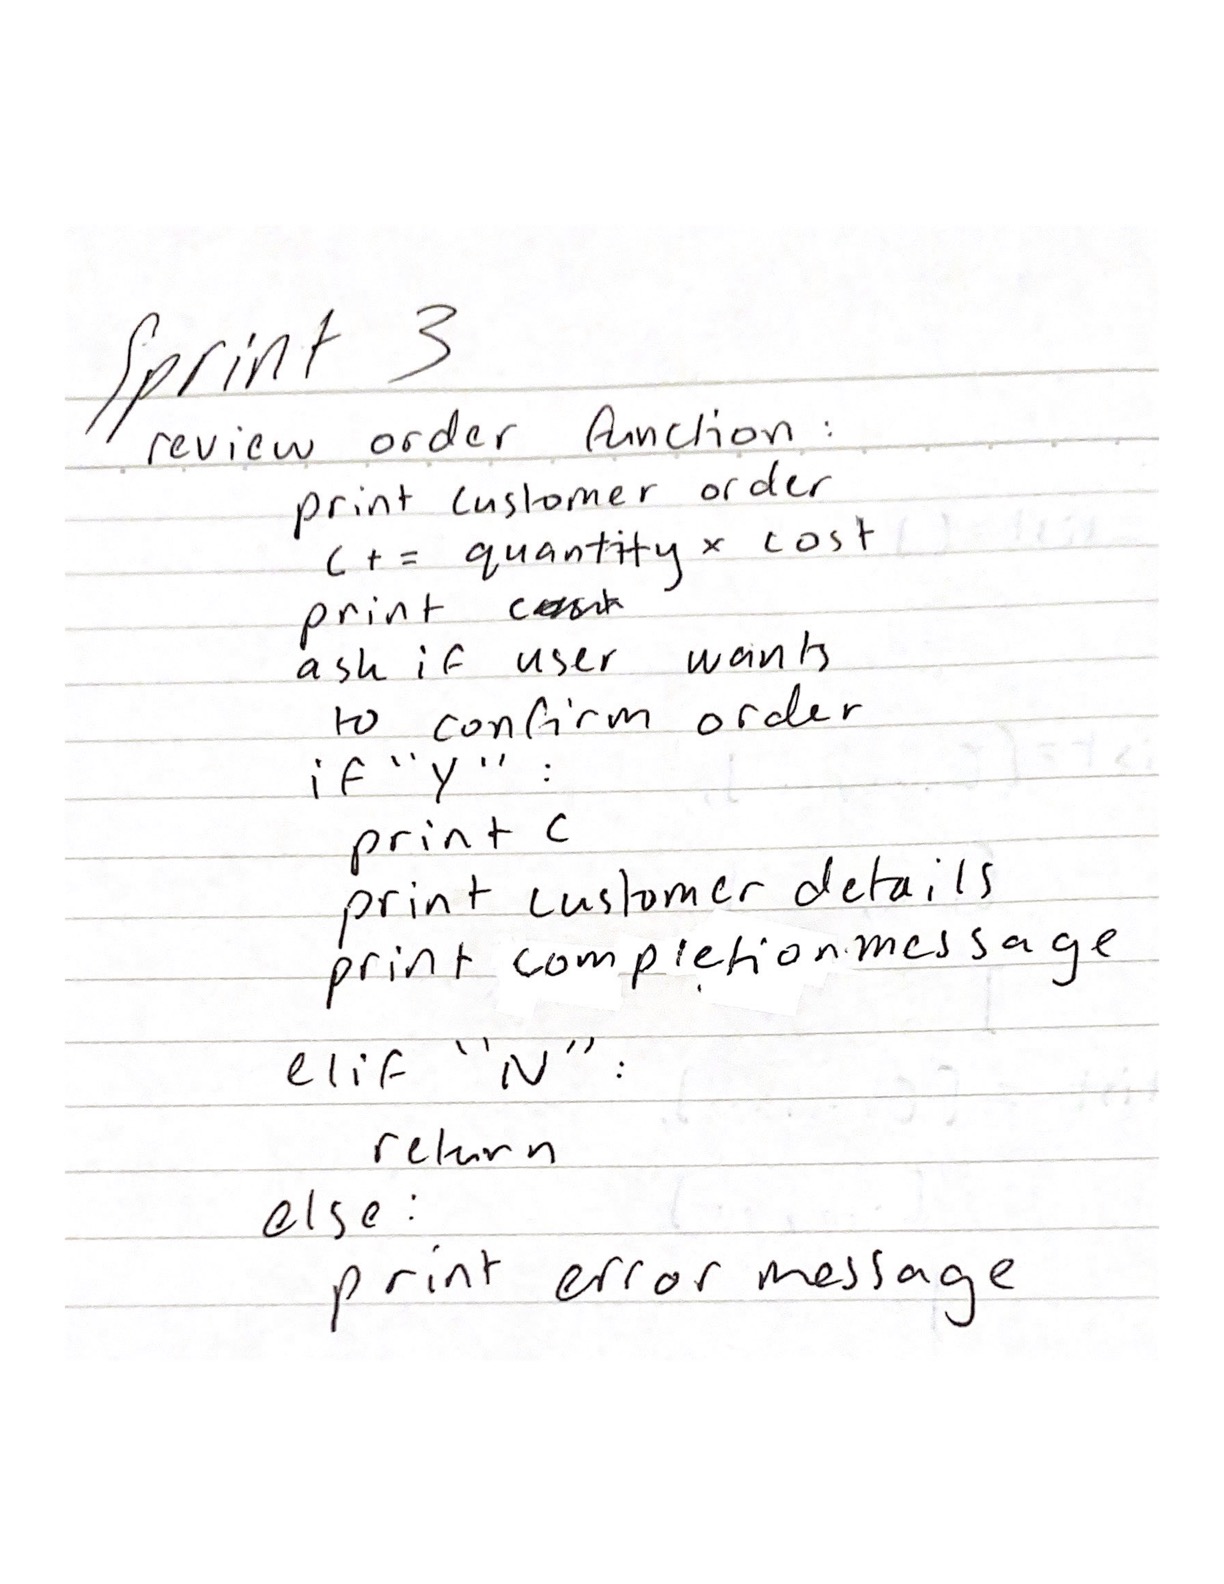 Sprint 3
review order function:
print customer order
c += quantity x cost
print c
ask if user wants
to confirm order
if "Y":
print c
print customer details
print completion message
elif "N":
return
else:
print error message